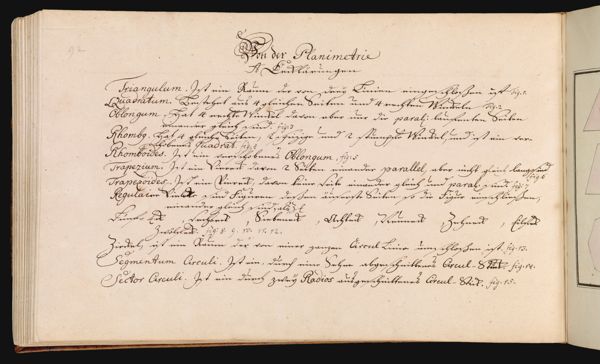 92
Von der Planimetrie
Erklärungen
Triangulum. Ist ein Raum der von dreÿ Linien eingeschloßen ist fig. 1.
Quadratum. Bestehet aus 4 gleichen Seiten und 4 rechten Winckeln fig. 2
Oblongum. Hat 4 rechte Winckel davon aber nur die parall: Seiten
einander gleich sind. fig. 3
Rhombg. Hat 4 gleiche Seiten, 2 spitzige und 2 stumpfe Winckel, und ist ein ver-
schobenes Quadrat. fig. 4
Rhomboides. Ist ein verschobenes Oblongum, fig. 5
Trapezium. Ist ein davon 2 Seiten einander parallel, aber nicht gleich sind fig. 6
Trapezoides. Ist ein davon keine Seite einander gleich und paral: sind fig. 7
Regulaere sind Figuren deßen Seiten so die Figur einschließen,
einander gleich sind, als
Fünf-Eck, Sechseck, Siebeneck, Achteck, Neuneck, Zeheneck, Eilfeck
Zwölfeck. fig. 8. 9. 10. 11. 12.
Zirckel, ist ein Raum der von einer gantzen Circul Linie eingeschloßen ist. fig. 13.
Segmentum Circuli. Ist ein durch eine Sehne abgeschnittenes Circul-Stück fig. 14.
Sector Circuli. Ist ein durch zweÿ Radios ausgeschnittenes Circul-Stück. fig. 15.